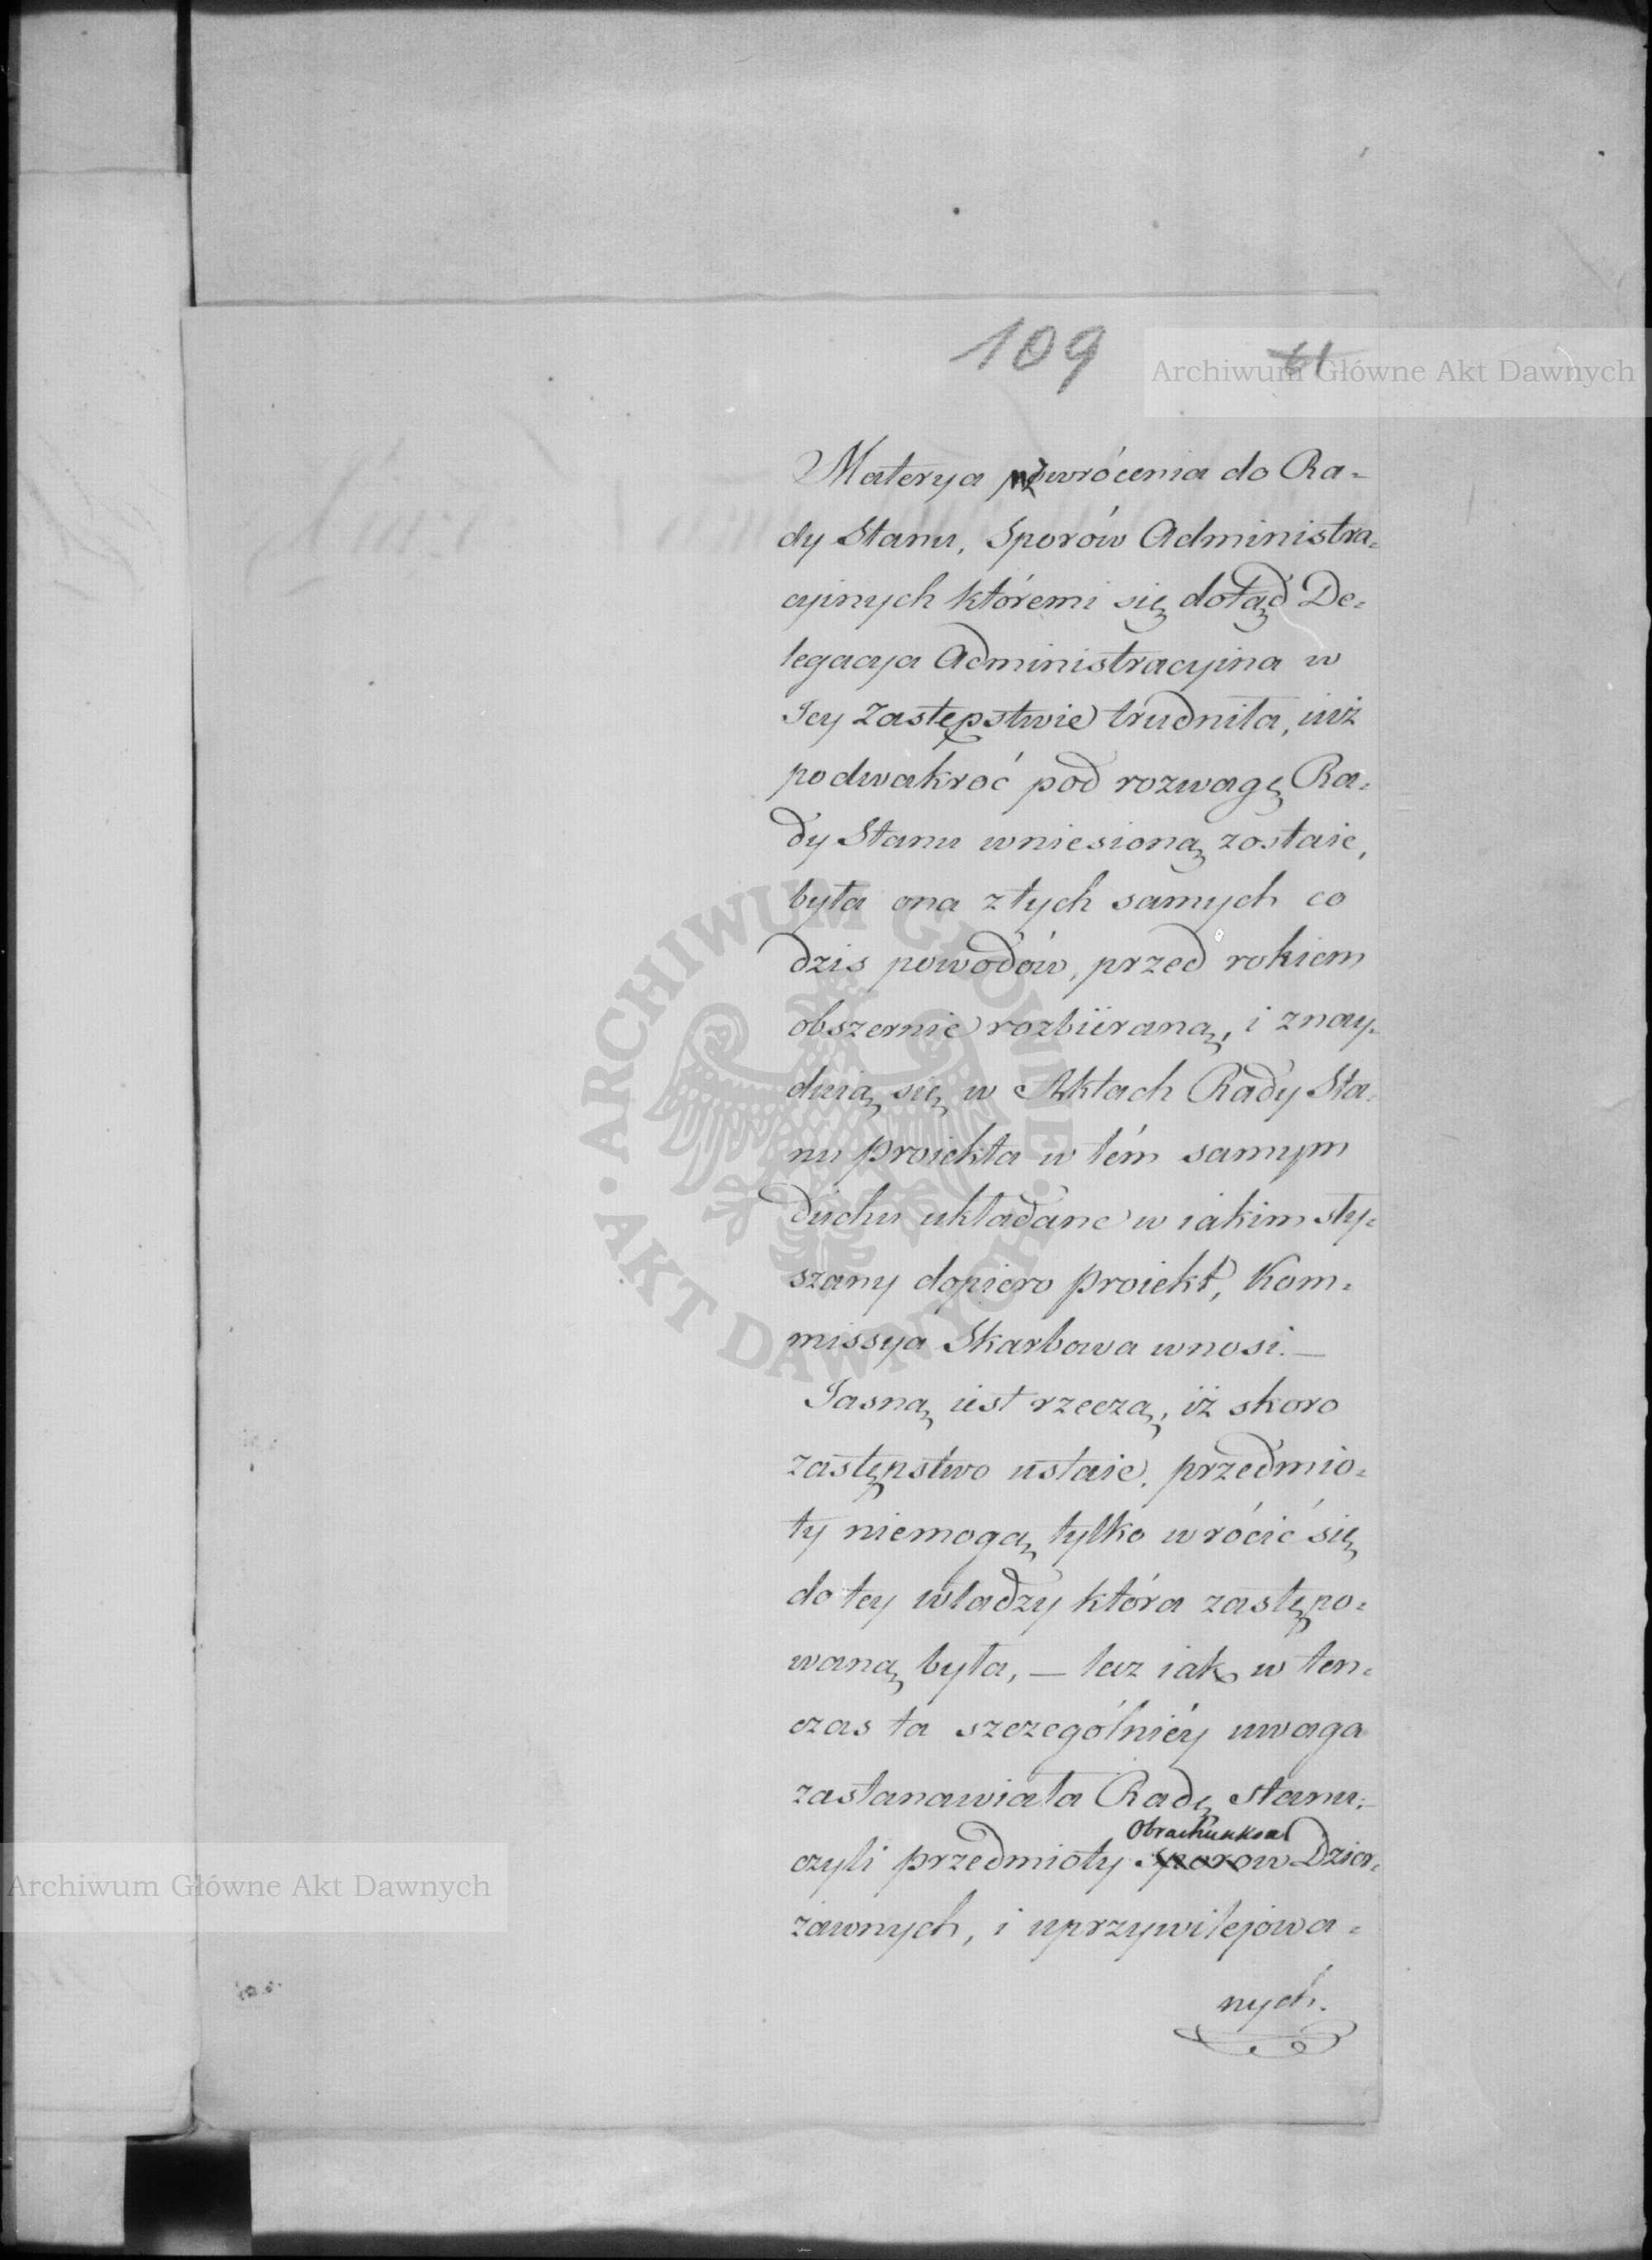 109 61
Archiwum Główne Akt Dawnych
Materya zwrócenia do Ra-
dy Stanu, Sporów Administra-
cyinych któremi się dotąd De-
legacya Administracyina w
Jey Zastępstwie trudniła, iuż
podwakroć pod rozwagę Ra-
dy Stanu wniesioną zostaie,
była ona z tych samych co
dzis powodów, przed rokiem
obszernie rozbiieraną, i znay-
duią się w Aktach Rady Sta-
nu proiekta w tém samym
duchu układane w iakim sły-
szany dopiero proiekt, Kom-
missya Skarbowa wnosi. —
Jasną iest rzeczą, iż skoro
zastępstwo ustaie, przedmio-
ty niemogą tylko wrócić się
do tey władzy która zastępo-
waną była, — lecz iak w ten-
czas ta szczególniéy uwaga
zastanawiała Radę Stanu:
Obrachunków
czyli przedmioty Sporow Dzier-
żawnych, i uprzywilejowa-
nych.
ARCHIWUM GŁÓWNE AKT DAWNYCH
Archiwum Główne Akt Dawnych